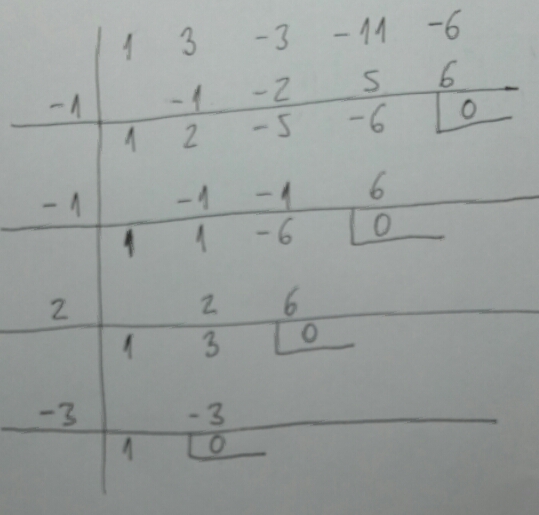 1 3 -3 -11 -6
-1 -1 -2 5 6
1 2 -5 -6 0
-1 -1 -1 6
1 1 -6 0
2 2 6
1 3 0
-3 -3
1 0